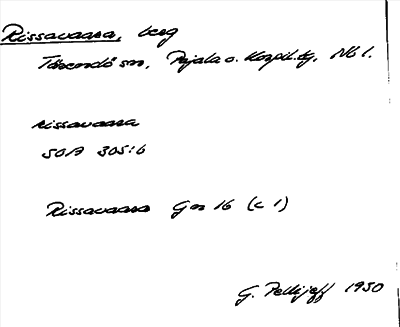 Rissavaara, berg
Tärendö sn, Pajala o. Korpil. tg, Nb l.
rissavaara
SOA 305:6
Rissavaara Gm 16 (c 1)
G. Pellijeff 1950